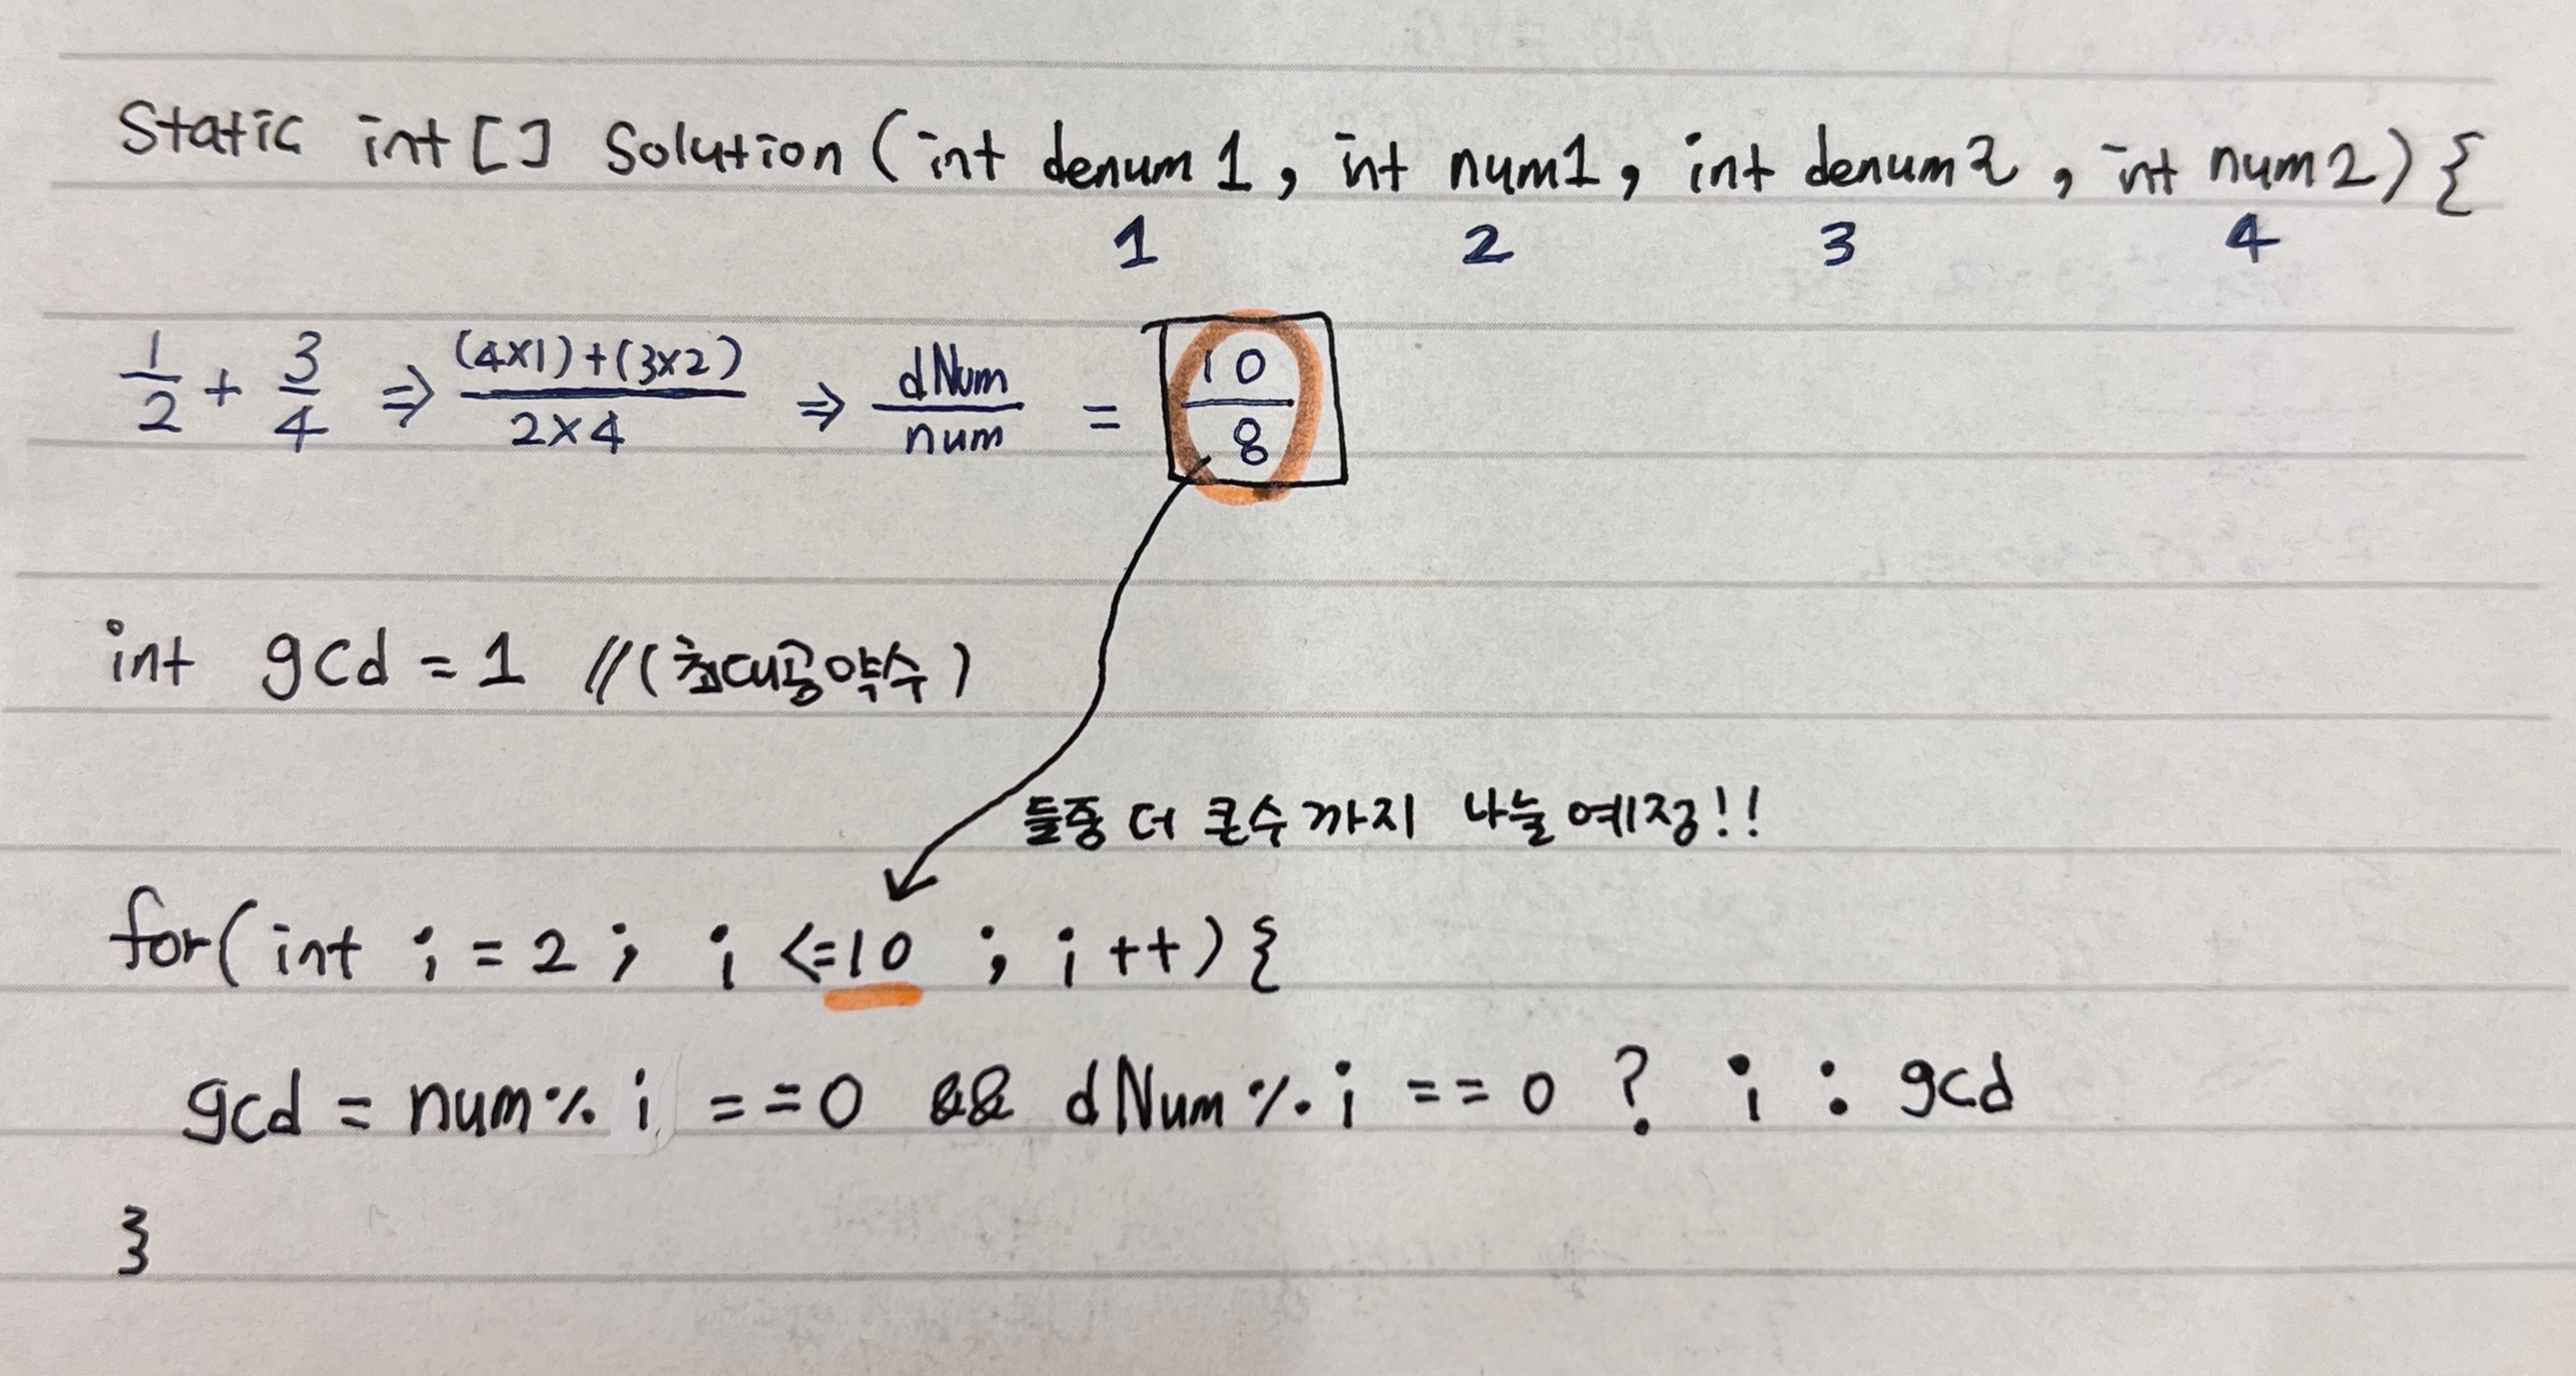 Static int[] Solution (int denum1, int num1, int denum2, int num2){
1 2 3 4
1/2 + 3/4 ⇒ (4×1)+(3×2)/2×4 ⇒ dNum/num = 10/8
int gcd = 1 //(최대공약수)
둘중 더 큰수까지 나눌예정!!
for(int i = 2; i <=10 ; i ++){
gcd = num% i ==0 && dNum % i == 0 ? i : gcd
}